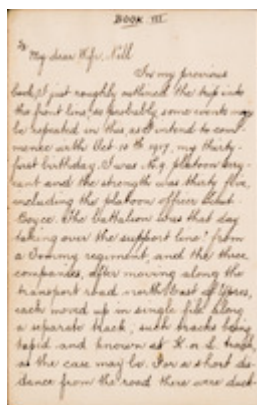 BOOK III
To
My dear Wife, Nell
In my previous
book, I just roughly outlined the trip into
the front line, so probably some events may
be repeated in this, as I intend to com-
mence with Oct. 10th 1917, my thirty-
first birthday. I was No 9 platoon Serg-
eant and the strength was thirty five,
including the platoon officer Lieut.
Boyce. The Battalion was that day
taking over the support line from
a Tommy regiment, and the three
companies, after moving along the
transport road north/East of Ypres,
each moved up in single file along
a separate track, such tracks being
taped and known as K. or L. track,
as the case may be. For a short dis-
tance from the road there were duck-